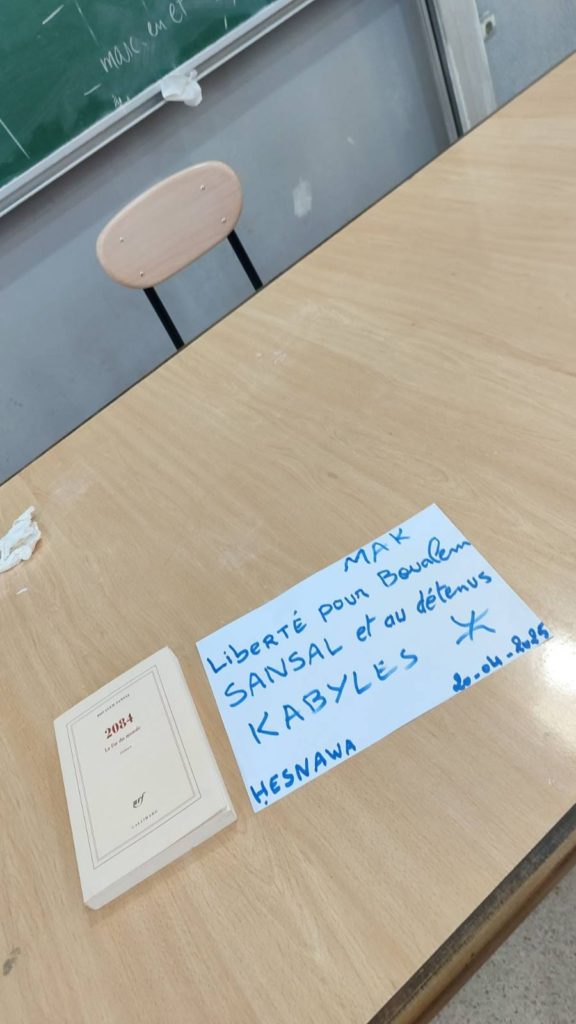 marc en et
MAK
Liberté pour Boualem
SANSAL et au détenus
KABYLES ⵣ
20-04-2025
HESNAWA
BOUALEM SANSAL
2084
La fin du monde
roman
nrf
GALLIMARD